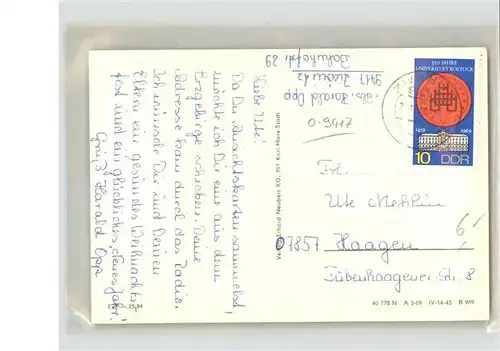 Abs. Harald Opp
9417 Zwönitz
Bahnhofstr. 29
Liebe Ute!
Da Du Ansichtskarten sammelst,
möchte ich Dir eine aus dem
Erzgebirge schicken. Deine
Adresse kam durch das Radio.
Ich wünsche Dir und Deinen
Eltern ein gesundes Weihnachts-
fest und ein glückliches "Neues Jahr".
Gruß Harald Opp
0-9417
550 JAHRE
UNIVERSITÄT ROSTOCK
1419 1969
10 DDR
Erhard Neubert KG, 901 Karl-Marx-Stadt
Frl.
Ute Mehlin
7857 Haagen
Tübenhaagener-Str. 8
6,-
40 778 N A 3-69 IV-14-45 B 969